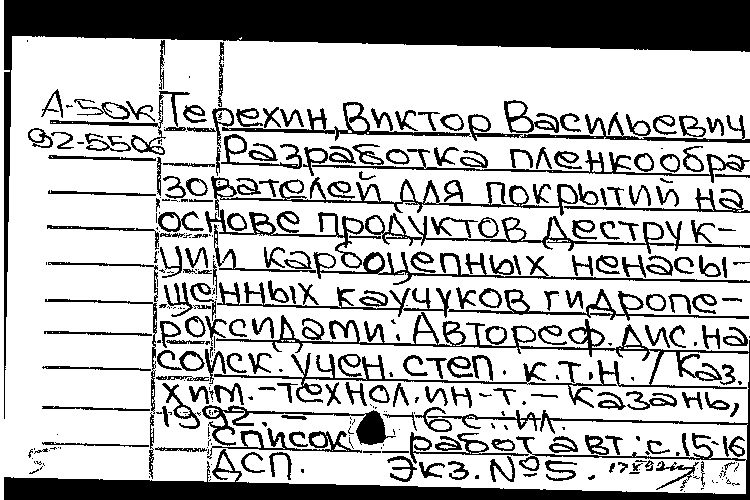 А-50К Терехин, Виктор Васильевич
92-5506 Разработка пленкообра-
зователей для покрытий на
основе продуктов деструк-
ции карбоцепных ненасы-
щенных каучуков гидропе-
роксидами: Автореф. дис. на
соиск. учен. степ. к.т.н. / Каз.
хим.-технол. ин-т. - Казань,
1992. - 16 с.: ил.
Список работ авт.: с. 15-16
ДСП. Экз. №5.